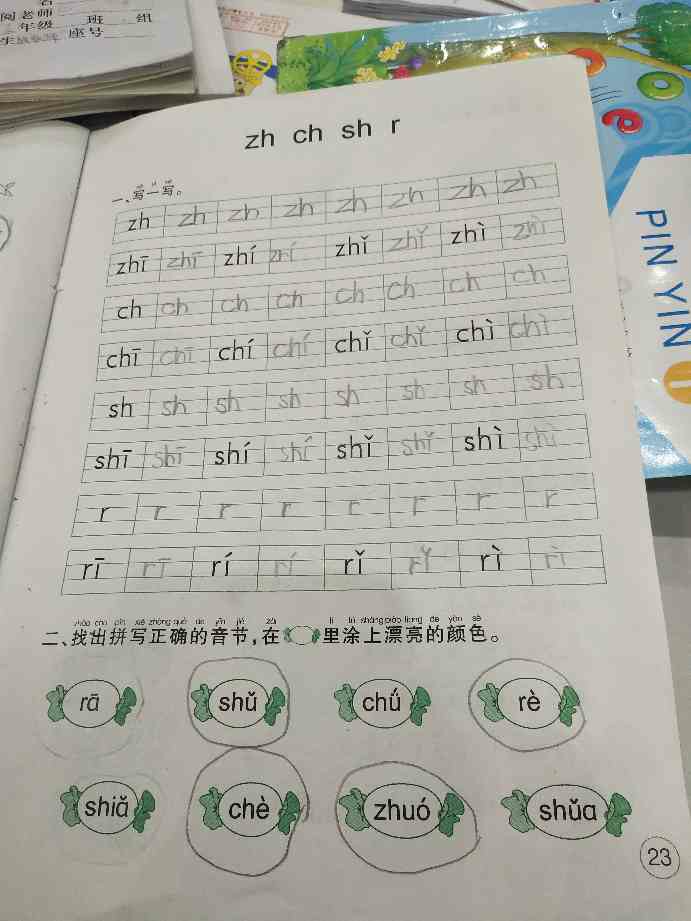 名
阅老师 班 组
年级 座号
PIN YIN 1
zh ch sh r
一、写一写。
zh zh zh zh zh zh zh zh
zhī zhī zhí zhí zhǐ zhǐ zhì zhì
ch ch ch ch ch ch ch ch
chī chī chí chí chǐ chǐ chì chì
sh sh sh sh sh sh sh sh
shī shī shí shí shǐ shǐ shì shì
r r r r r r r r
rī rī rí rí rǐ rǐ rì rì
zhǎo chū pīn xiě zhèng què de yīn jié zài lǐ tú shàng piào liang de yán sè
二、找出拼写正确的音节，在 里涂上漂亮的颜色。
rā shǔ chǘ rè
shiǎ chè zhuó shǔa
23